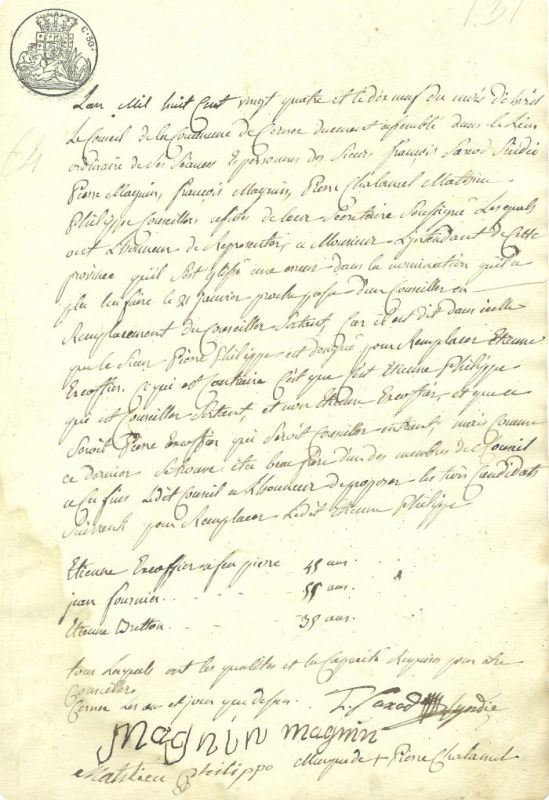 C. 50.
131
L'an Mil huit Cent vingt quatre et le dix neuf du mois d'avril
Le Conseil de la Commune de Cernex duement assemblé dans le lieu
ordinaire de ses séances Es personnes des Sieurs françois Saxod Sindic
Pierre Magnin, françois Magnin, Pierre Chalansel Mathieu
Philippe Conseillers assisté de leur Secretaire Soussigné Lesquels
ont L'honneur de Representer, a Monsieur L'intendant de Cette
province qu'il s'est glissé une erreur dans la nomination qu'il a
plu leu faire le 21 janvier proche passé d'un Conseiller en
Remplacement du Conseiller Sortant, Car il est dit dans icelle
que le Sieur Pierre Philippe est designé pour Remplacer Etienne
Ercoffier, Ce qui est Contraire C'est que C'est Etienne Philippe
qui est Conseiller Sortant, et non Etienne Ercoffier, et que ce
Seroit Pierre Ercoffier qui Seroit Conseiller entrant, mais Comme
ce Dernier Se trouve etre beau frère d'un des membres de Conseil
a Ces fins Ledit Conseil a L'honneur de proposer les trois Candidats
Suivants pour Remplacer Ledit Etienne Philippe
Etienne Ercoffier a feu pierre 45 ans.
jean fournier 55 ans.
Etienne Bretton 35 ans.
tous Lesquels ont les qualites et la Capacité Requises pour etre
Conseillers
Cernex Les an et jour que dessus. F. Saxod Syndic
Magnin magnin
Mathieu Philippe Marque de + Pierre Chalansel